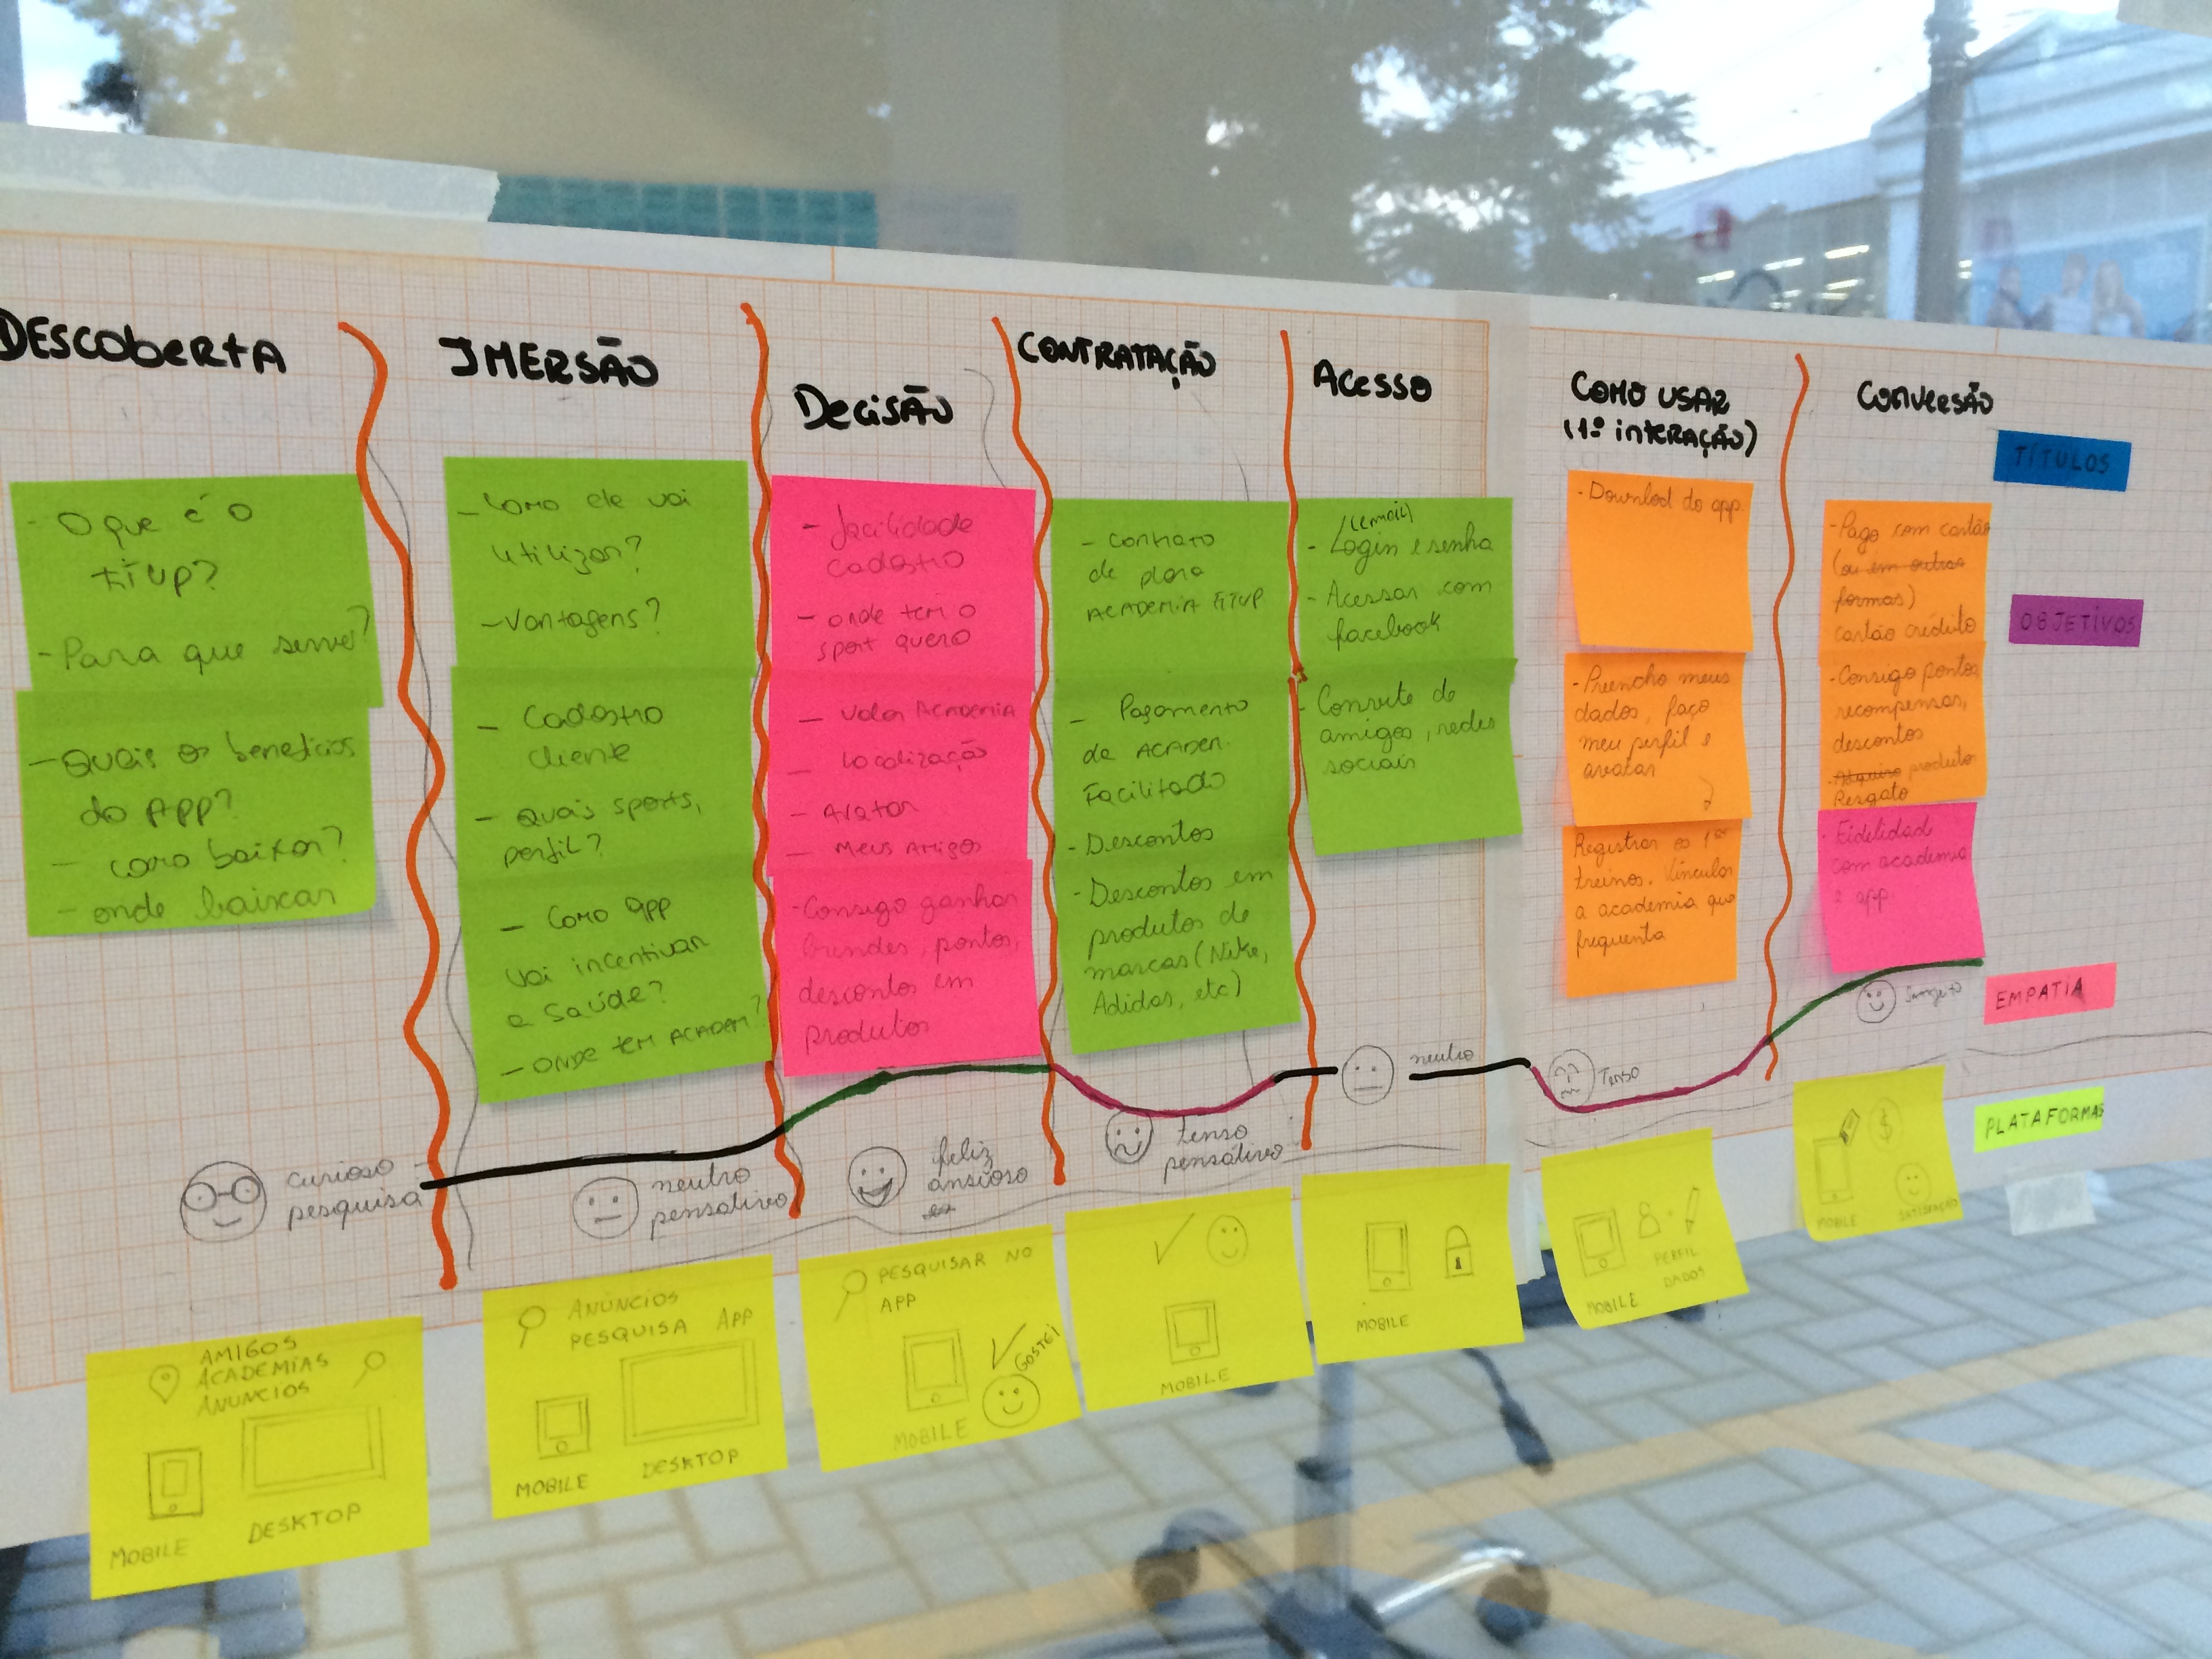 DESCOBERTA
- O que é o
FITUP?
- Para que serve?
- Quais os benefícios
do APP?
- como baixar?
- onde baixar
curioso
pesquisa
AMIGOS
ACADEMIAS
ANÚNCIOS
MOBILE
DESKTOP
IMERSÃO
- Como ele vai
utilizar?
- Vantagens?
- Cadastro
cliente
- Quais sports,
perfil?
- Como app
vai incentivar
a saúde?
- ONDE TEM ACADEM?
neutro
pensativo
ANÚNCIOS
PESQUISA APP
MOBILE
DESKTOP
DECISÃO
- facilidade
cadastro
- onde tem o
sport quero
- Valor ACADEMIA
- localização
- Avatar
- Meus Amigos
- Consigo ganhar
brindes, pontos,
descontos em
produtos
feliz
ansioso
PESQUISAR NO
APP
GOSTEI
MOBILE
CONTRATAÇÃO
- contrato
de plano
ACADEMIA FITUP
- Pagamento
de ACADEM.
Facilitado
- Descontos
- Descontos em
produtos de
marcas (Nike,
Adidas, etc)
tenso
pensativo
MOBILE
ACESSO
(email)
- Login e senha
- Acessar com
facebook
- Convite de
amigos, redes
sociais
neutro
MOBILE
COMO USAR
(1º interação)
- Downlod do app
- Preencho meus
dados, faço
meu perfil e
avatar
Registrar os 1os
treinos. Vincular
a academia que
frequenta
Tenso
PERFIL
DADOS
MOBILE
CONVERSÃO
- Pago com cartão
(ou em outras
formas)
cartão crédito
- Consigo pontos,
recompensas,
descontos
- Adquiro produtos
Resgato
- Fidelidad
com academia
e app
$
MOBILE
SATISFAÇÃO
TÍTULOS
OBJETIVOS
EMPATIA
PLATAFORMAS